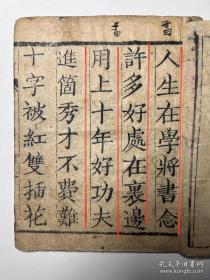 人生在學將書念
許多好處在裏邊
用上十年好功夫
進箇秀才不費難
十字被紅雙插花
孔夫子旧书网